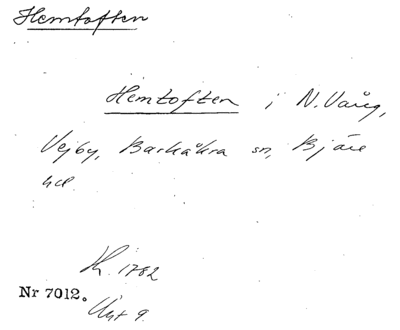 Hemtoften
Hemtoften i N. Vång,
Vejby, Barkåkra sn, Bjäre
hd.
K. 1782
Nr 7012.
Akt 9.